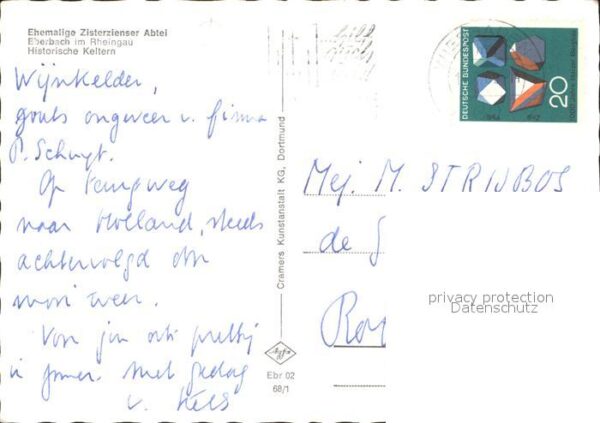 Ehemalige Zisterzienser Abtei
Eberbach im Rheingau
Historische Keltern
DEUTSCHE BUNDESPOST
20
Wijnkelder,
zoals ongeveer v. firma
P. Schuyt.
Op terugweg
naar Holland, steeds
achtervolgd door
mooi weer.
Voor jou ook prettig
Met
v. Kees
Cramers Kunstanstalt KG, Dortmund
Agfa
Ebr 02
68/1
Mej. M. STRIJBOS
de
privacy protection
Datenschutz